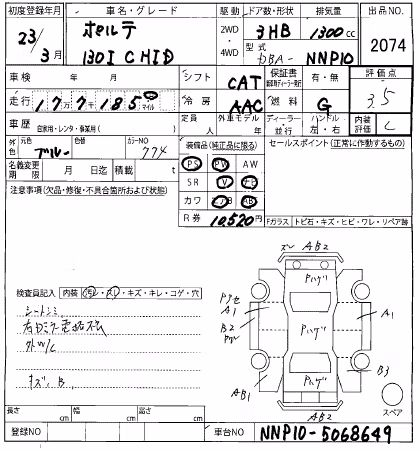 初度登録年月 車名・グレード 駆動 ドア数・形状 排気量 出品NO.
23/3月 ポルテ 130I C HID 2WD 4WD 3HB 1300cc 2074
型式 DBA-NNP10
車検 年 月 シフト CAT 保証書 有・無 評価点 3.5
走行 17万7千185 マイル 冷房 AAC 燃料 G
定員 人 外車モデル 年 ディーラー・並行 ハンドル 左・右 内装評価 C
車歴 自家用・レンタ・事業用( )
外色 元色 ブルー 色替 カラーNO 774
装備品(純正品に限る) セールスポイント(正常に作動するもの)
名義変更期限 月 日迄 積載 t
PS PW AW
SR TV ナビ
カワ エアB AB
注意事項(欠品・修復・不具合箇所および状態)
R券 10,520円
Fガラス トビ石・キズ・ヒビ・ワレ・リペア跡
AB2
検査員記入 内装 汚レ・スレ・キズ・キレ・コゲ・穴
シートシミ
外W/C
キズ、B
Pハゲ
A1
B2
Pハゲ
A1
B3
AB1
Pハゲ
AB2
スペア
長さ cm 幅 cm 高さ cm
登録NO 車台NO NNP10-5068649